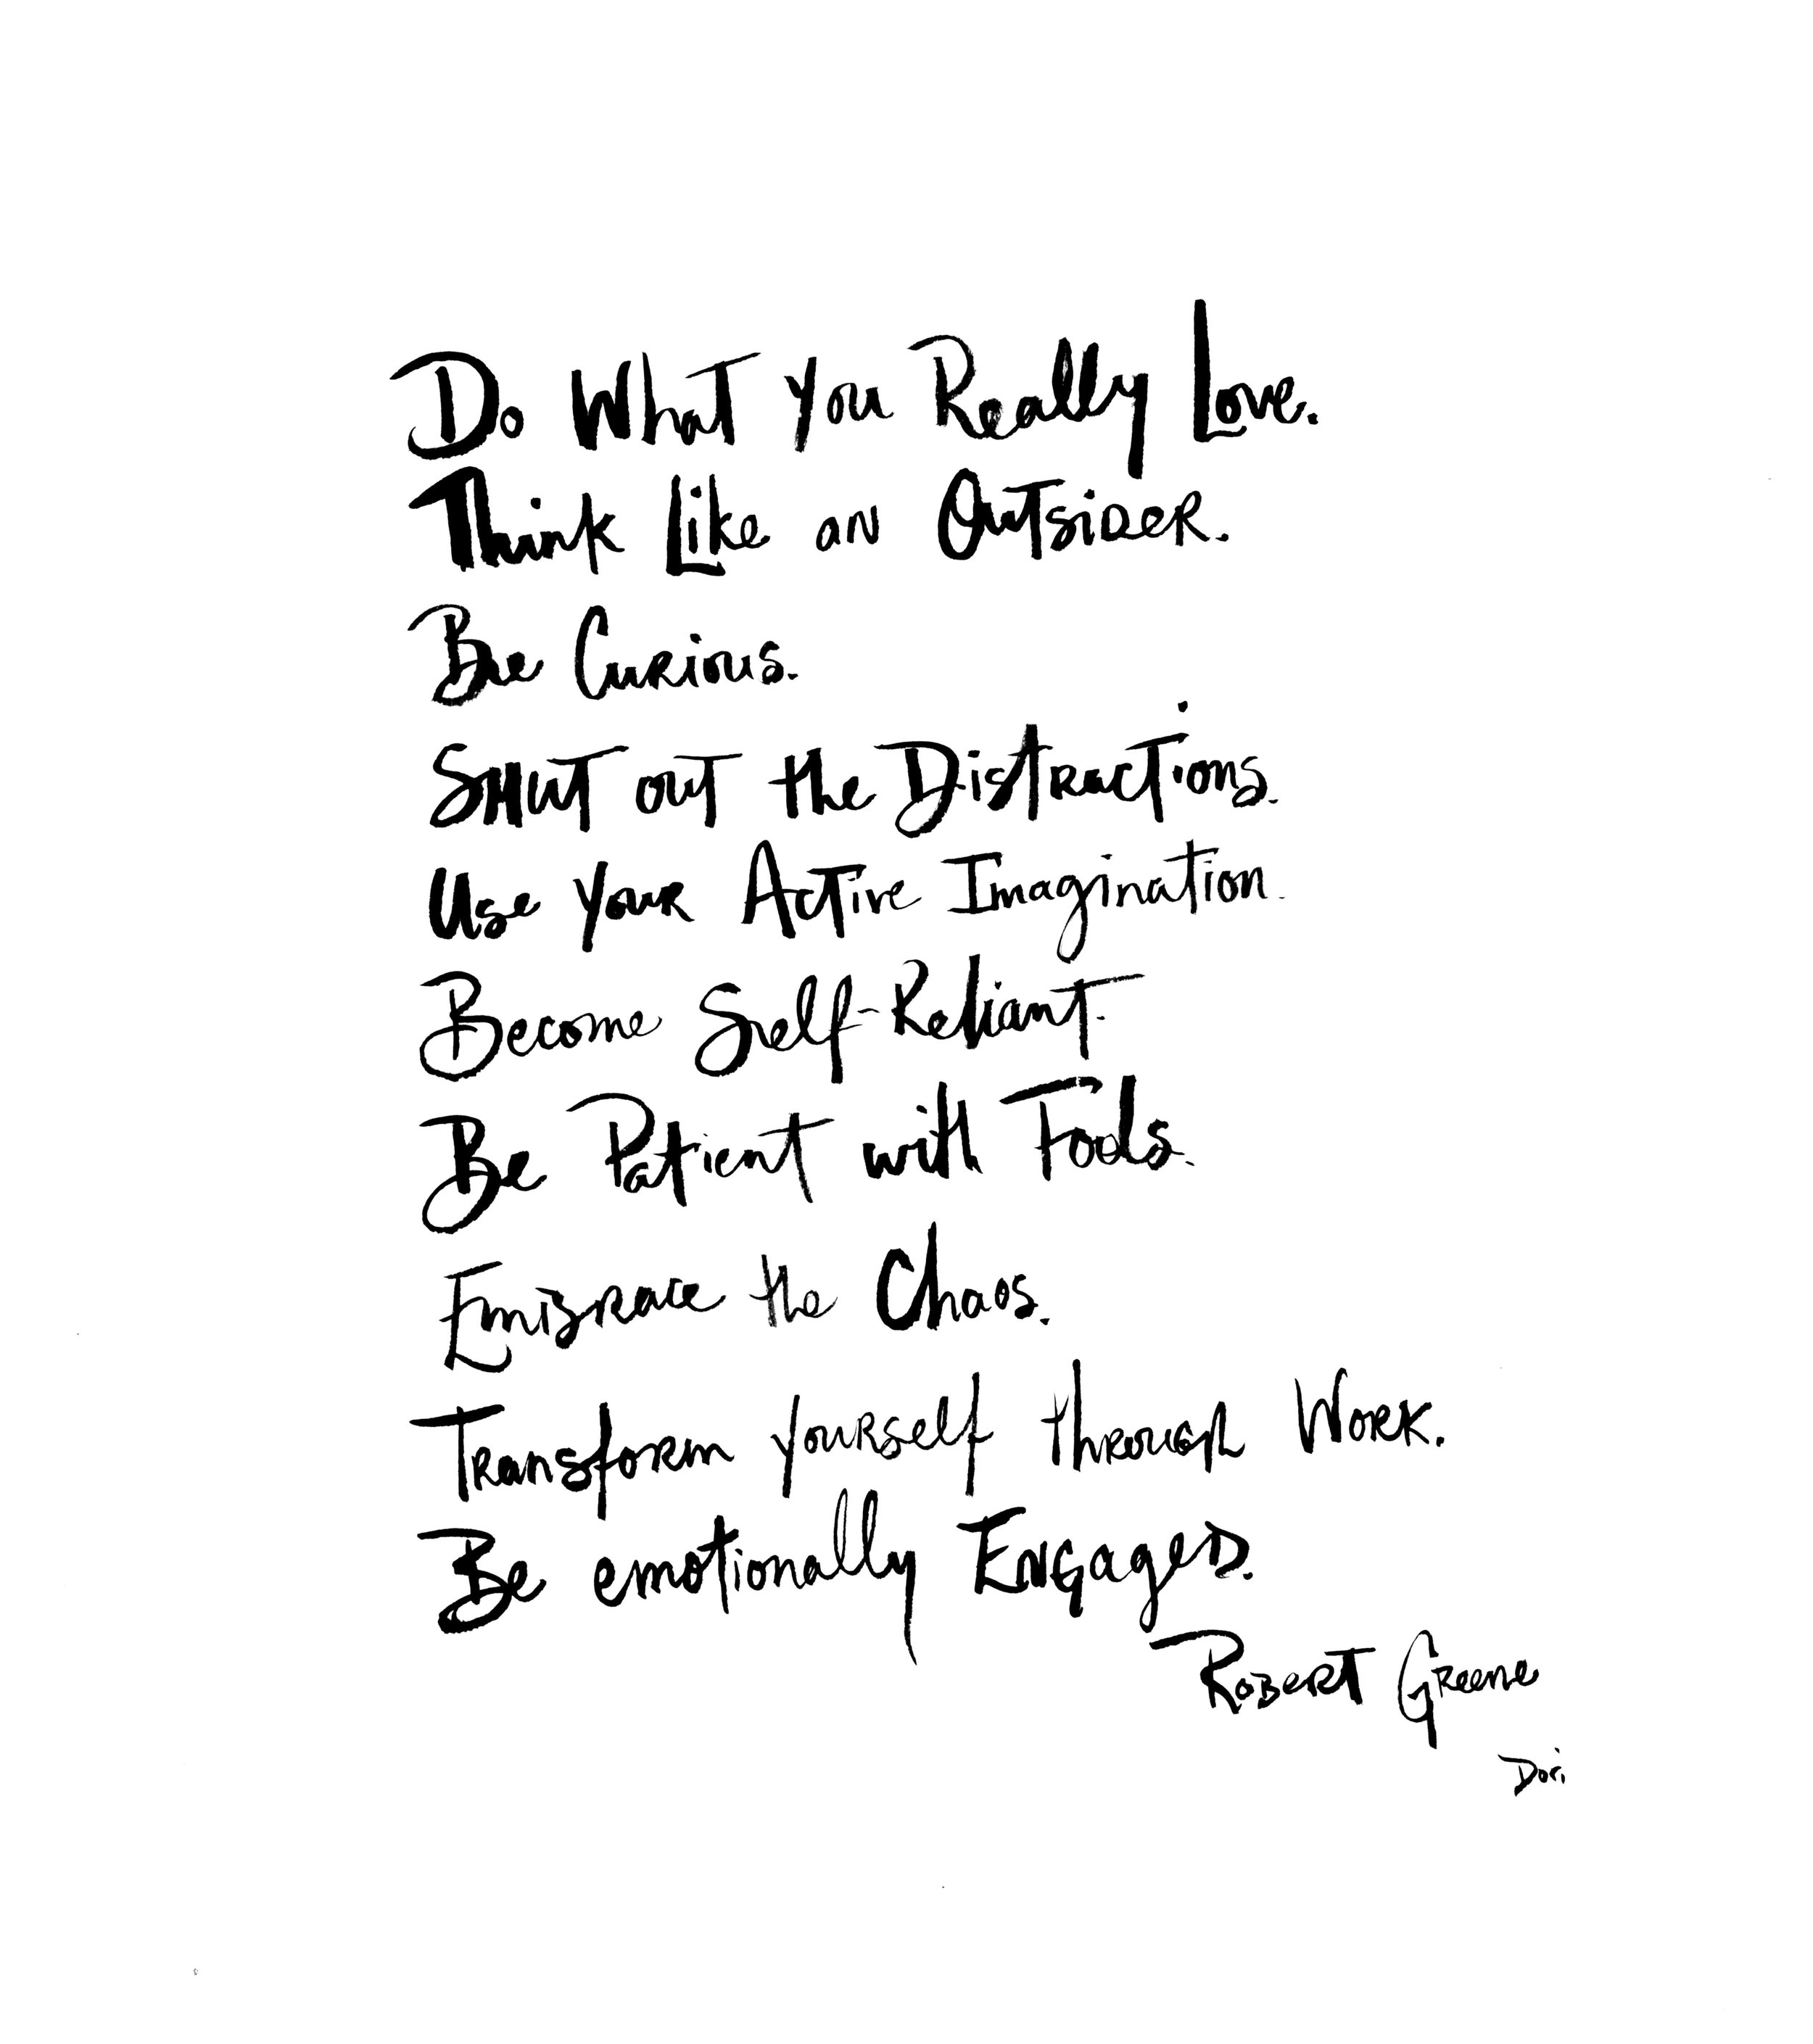 Do What You Really Love.
Think Like an Outsider.
Be Curious.
Shut out the Distractions.
Use Your Active Imagination.
Become Self-Reliant.
Be Patient with Fools.
Embrace the Chaos.
Transform yourself through Work.
Be emotionally Engaged.
Robert Greene
Dori